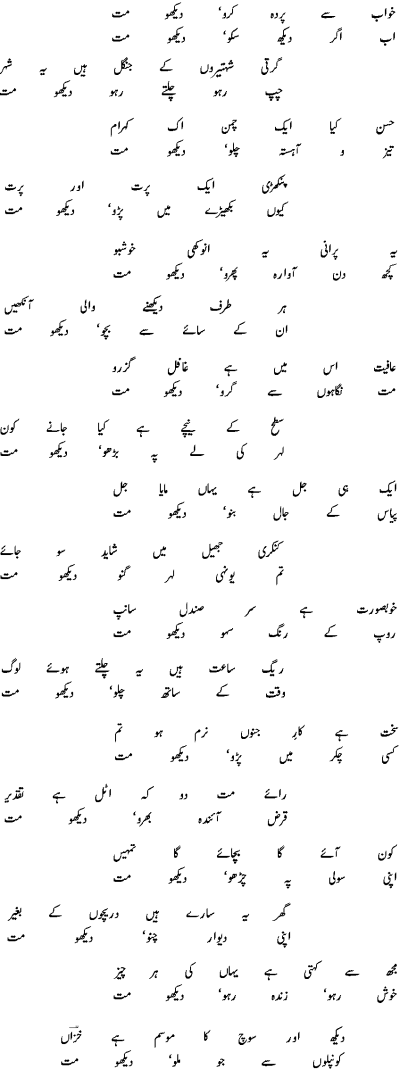 خواب سے پردہ کرو، دیکھو مت
اب اگر دیکھ سکو، دیکھو مت
گرتی شہتیروں کے جنگل ہیں یہ شہر
چپ رہو چلتے رہو دیکھو مت
حسن کیا ایک چمن اک کہرام
تیز و آہستہ چلو، دیکھو مت
پنکھڑی ایک پرت اور پرت
کیوں بکھیڑے میں پڑو، دیکھو مت
یہ پرانی یہ انوکھی خوشبو
کچھ دن آوارہ پھرو، دیکھو مت
ہر طرف دیکھنے والی آنکھیں
ان کے سائے سے بچو، دیکھو مت
عافیت اس میں ہے غافل گزرو
مت نگاہوں سے گرو، دیکھو مت
سطح کے نیچے ہے کیا جانے کون
لہر کی لے پہ بڑھو، دیکھو مت
ایک ہی جل ہے یہاں مایا جل
پیاس کے جال بنو، دیکھو مت
کنکری جھیل میں شاید سو جائے
تم یونہی لہر گنو دیکھو مت
خوبصورت ہے سر صندل سانپ
روپ کے رنگ سہو دیکھو مت
ریگ ساعت ہیں یہ چلتے ہوئے لوگ
وقت کے ساتھ چلو، دیکھو مت
سخت ہے کار جنوں نرم ہو تم
کسی چکر میں پڑو، دیکھو مت
رائے مت دو کہ اٹل ہے تقدیر
قرض آئندہ بھرو، دیکھو مت
کون آئے گا بچائے گا تمہیں
اپنی سولی پہ چڑھو، دیکھو مت
گھر یہ سارے ہیں دریچوں کے بغیر
اپنی دیوار چنو، دیکھو مت
مجھ سے کہتی ہے یہاں کی ہر چیز
خوش رہو، زندہ رہو، دیکھو مت
دیکھ اور سوچ کا موسم ہے خزاںؔ
کونپلوں سے جو ملو، دیکھو مت